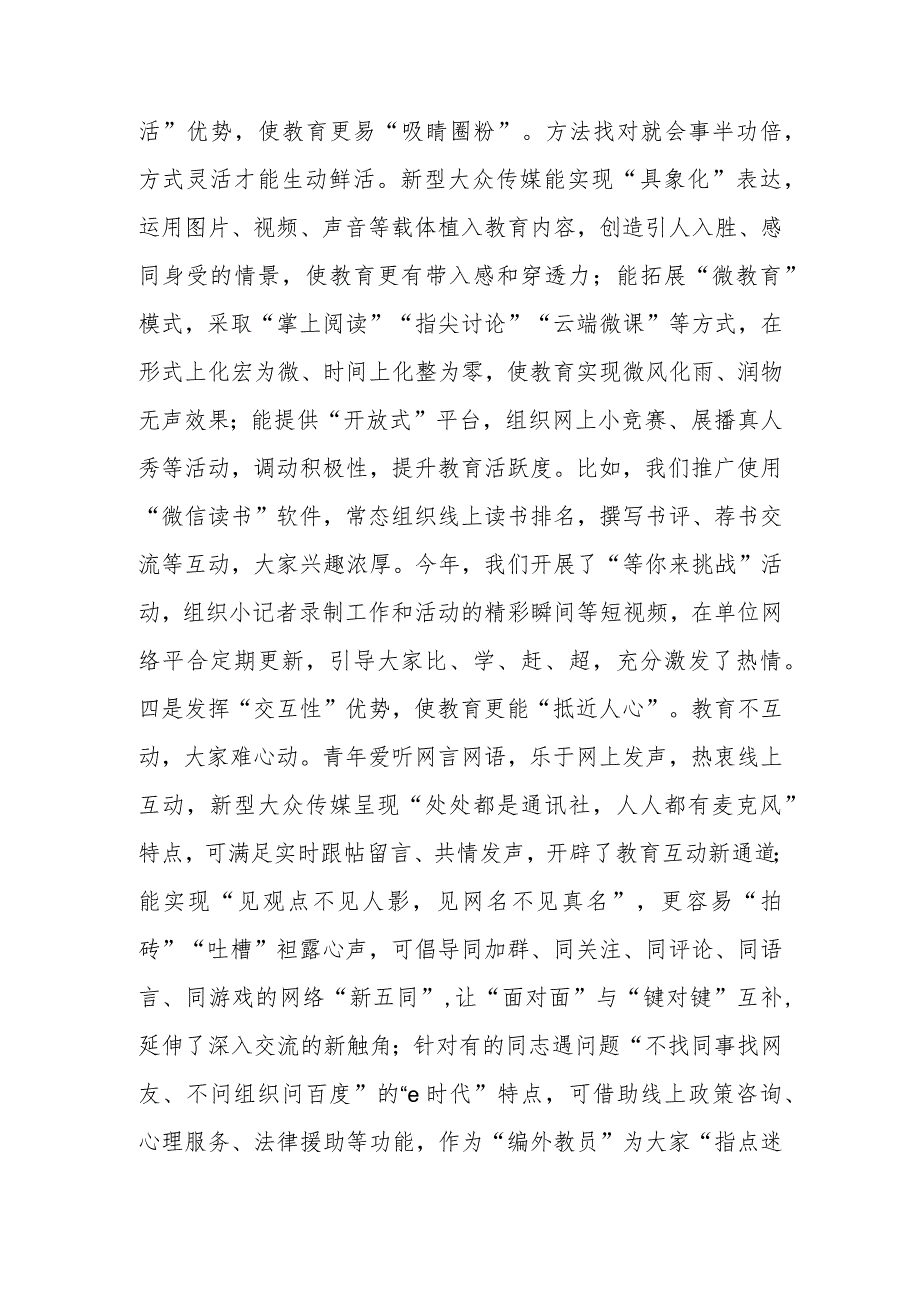 活”优势，使教育更易“吸睛圈粉”。方法找对就会事半功倍，
方式灵活才能生动鲜活。新型大众传媒能实现“具象化”表达，
运用图片、视频、声音等载体植入教育内容，创造引人入胜、感
同身受的情景，使教育更有带入感和穿透力；能拓展“微教育”
模式，采取“掌上阅读”“指尖讨论”“云端微课”等方式，在
形式上化宏为微、时间上化整为零，使教育实现微风化雨、润物
无声效果；能提供“开放式”平台，组织网上小竞赛、展播真人
秀等活动，调动积极性，提升教育活跃度。比如，我们推广使用
“微信读书”软件，常态组织线上读书排名，撰写书评、荐书交
流等互动，大家兴趣浓厚。今年，我们开展了“等你来挑战”活
动，组织小记者录制工作和活动的精彩瞬间等短视频，在单位网
络平合定期更新，引导大家比、学、赶、超，充分激发了热情。
四是发挥“交互性”优势，使教育更能“抵近人心”。教育不互
动，大家难心动。青年爱听网言网语，乐于网上发声，热衷线上
互动，新型大众传媒呈现“处处都是通讯社，人人都有麦克风”
特点，可满足实时跟帖留言、共情发声，开辟了教育互动新通道；
能实现“见观点不见人影，见网名不见真名”，更容易“拍
砖”“吐槽”袒露心声，可倡导同加群、同关注、同评论、同语
言、同游戏的网络“新五同”,让“面对面”与“键对键”互补，
延伸了深入交流的新触角；针对有的同志遇问题“不找同事找网
友、不问组织问百度”的“e 时代”特点，可借助线上政策咨询、
心理服务、法律援助等功能，作为“编外教员”为大家“指点迷